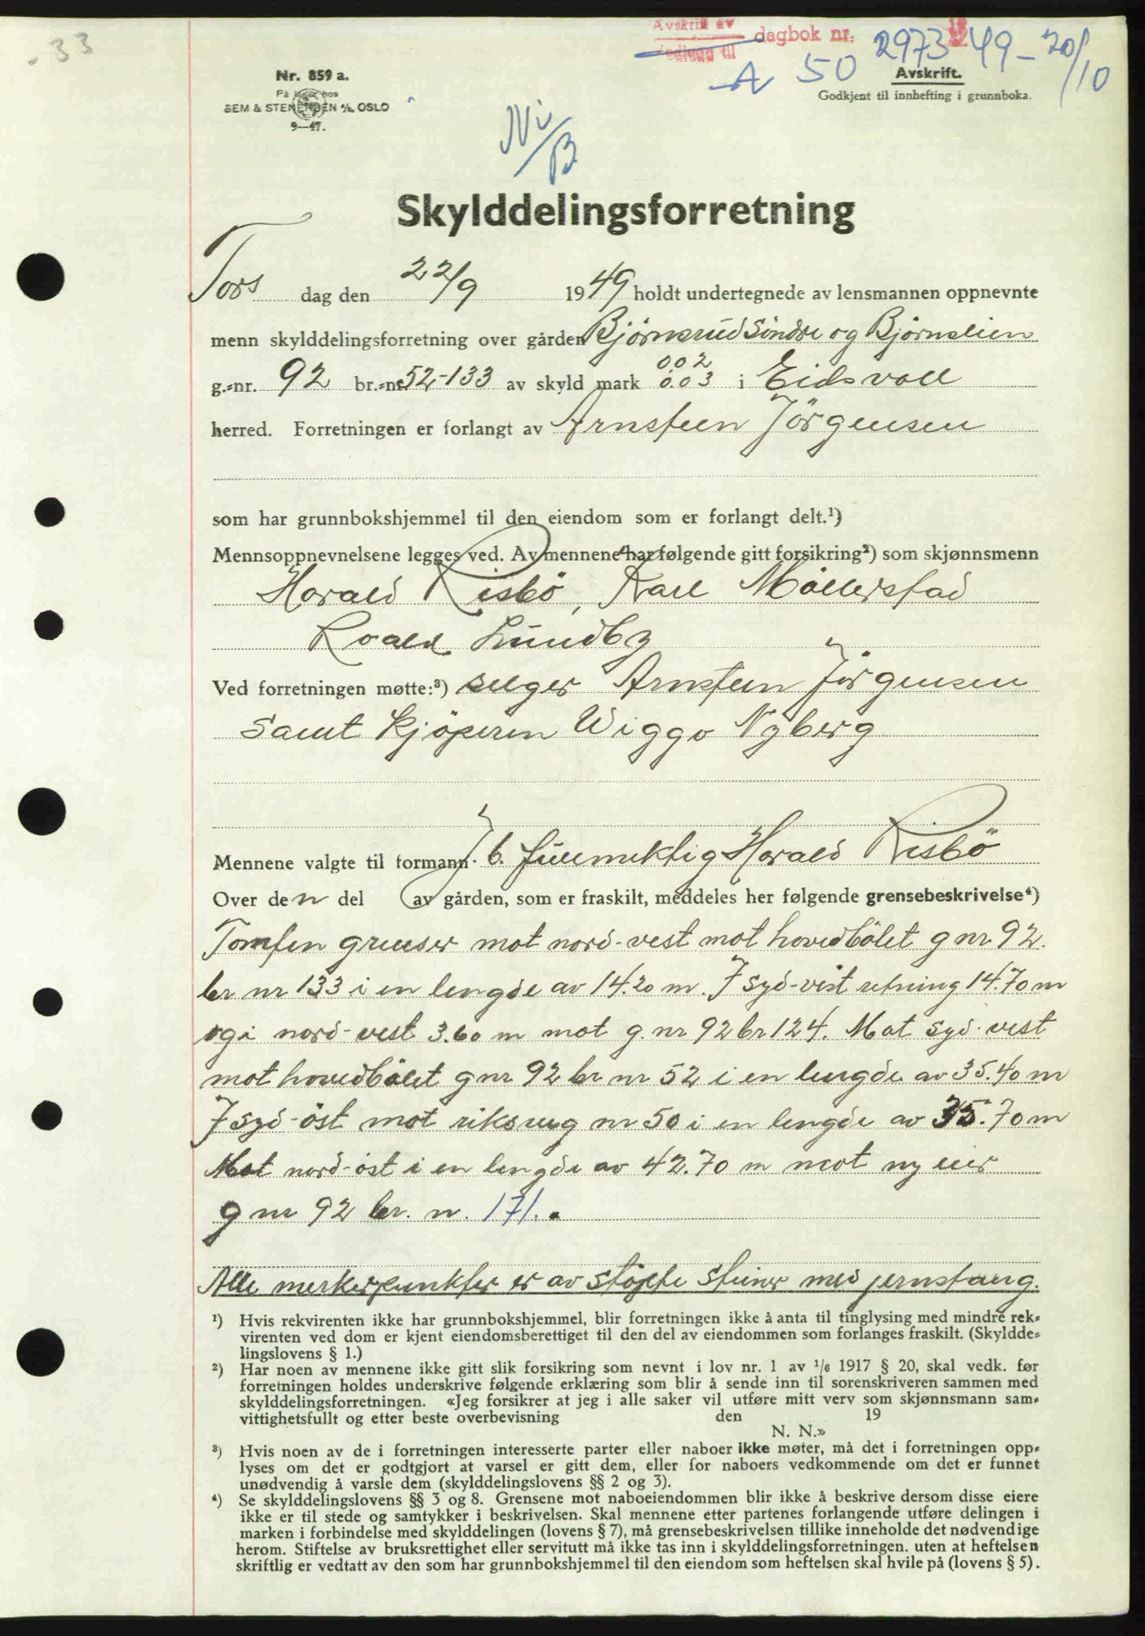 33
Avskrift av dagbok nr. 2973 1949 - 20/10
vedlegg til
A 50
Nr. 859 a.
På lager hos
SEM & STENERSEN A/S, OSLO
9—47.
Avskrift.
Godkjent til innhefting i grunnboka.
Ni/B
Skylddelingsforretning
Tors dag den 22/9 1949 holdt undertegnede av lensmannen oppnevnte
menn skylddelingsforretning over gården Bjørnsrud Söndre og Bjørnslien
0.02
g.-nr. 92 br.-nr. 52-133 av skyld mark 0.03 i Eidsvoll
herred. Forretningen er forlangt av Arnsteen Jörgensen
som har grunnbokshjemmel til den eiendom som er forlangt delt.¹)
Mennsoppnevnelsene legges ved. Av mennene har følgende gitt forsikring²) som skjønnsmenn
Harald Risbö, Karl Möllerstad
Roald Lundby
Ved forretningen møtte:³) selger Arnsteen Jörgensen
Samt kjöperen Wiggo Nyberg
Mennene valgte til formann: Jb. fullmektig Harald Risbö
Over den del av gården, som er fraskilt, meddeles her følgende grensebeskrivelse⁴)
Tomten grenser mot nord-vest mot hovedbölet g nr 92.
br nr 133 i en lengde av 14.20 m. I syd-vest retning 14.70 m
og i nord-vest 3.60 m mot g. nr 92 br 124. Mot syd-vest
mot hovedbölet g nr 92 br nr 52 i en lengde av 35.40 m
I syd-öst mot riksveg nr 50 i en lengde av 35.70 m
Mot nord-öst i en lengde av 42.70 m mot ny eier
g nr 92 br. n. 171.
Alle merkerpunkter er av stöpte steiner med jernstang.
¹) Hvis rekvirenten ikke har grunnbokshjemmel, blir forretningen ikke å anta til tinglysing med mindre rek-
virenten ved dom er kjent eiendomsberettiget til den del av eiendommen som forlanges fraskilt. (Skyldde-
lingslovens § 1.)
²) Har noen av mennene ikke gitt slik forsikring som nevnt i lov nr. 1 av 1/6 1917 § 20, skal vedk. før
forretningen holdes underskrive følgende erklæring som blir å sende inn til sorenskriveren sammen med
skylddelingsforretningen. «Jeg forsikrer at jeg i alle saker vil utføre mitt verv som skjønnsmann sam-
vittighetsfullt og etter beste overbevisning den 19
N. N.»
³) Hvis noen av de i forretningen interesserte parter eller naboer ikke møter, må det i forretningen opp-
lyses om det er godtgjort at varsel er gitt dem, eller for naboers vedkommende om det er funnet
unødvendig å varsle dem (skylddelingslovens §§ 2 og 3).
⁴) Se skylddelingslovens §§ 3 og 8. Grensene mot naboeiendommen blir ikke å beskrive dersom disse eiere
ikke er til stede og samtykker i beskrivelsen. Skal mennene etter partenes forlangende utføre delingen i
marken i forbindelse med skylddelingen (lovens § 7), må grensebeskrivelsen tillike inneholde det nødvendige
herom. Stiftelse av bruksrettighet eller servitutt må ikke tas inn i skylddelingsforretningen. uten at heftelsen
skriftlig er vedtatt av den som har grunnbokshjemmel til den eiendom som heftelsen skal hvile på (lovens § 5).